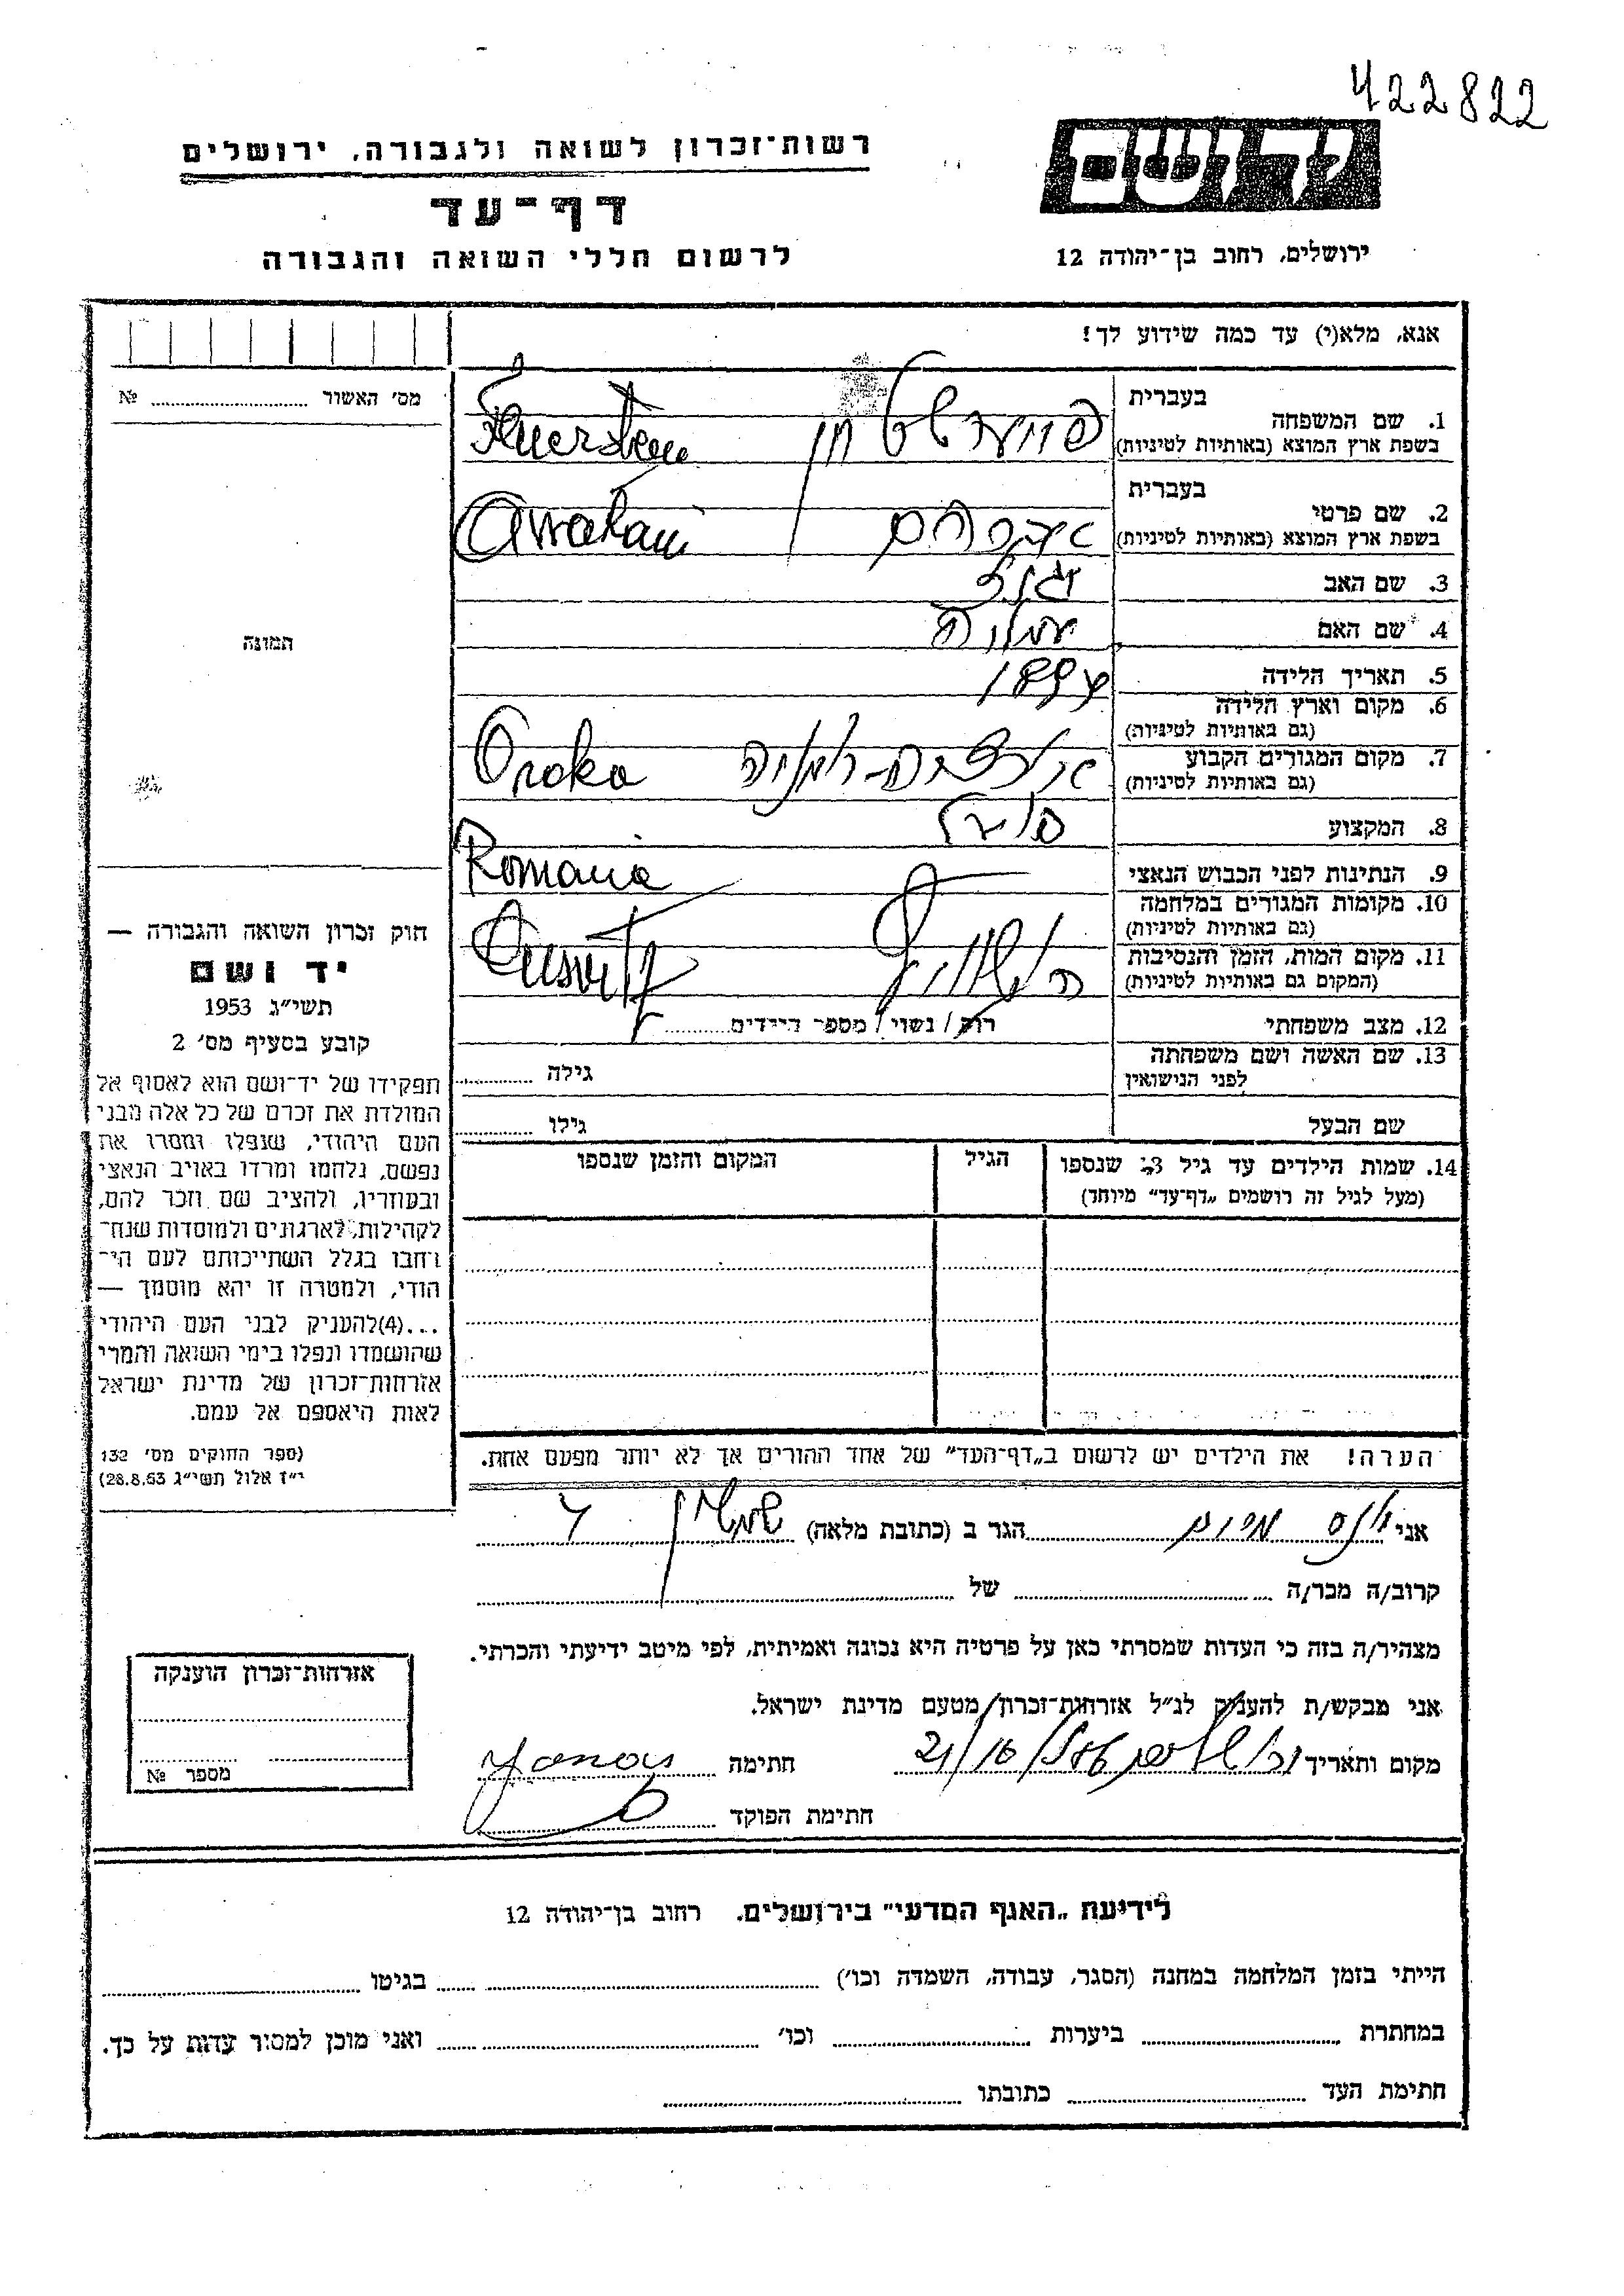 422822
ידושם
רשות־זכרון לשואה ולגבורה, ירושלים
דף־עד
לרשום חללי השואה והגבורה
ירושלים, רחוב בן־יהודה 12
אנא, מלא(י) עד כמה שידוע לך!
מס׳ האשור № ........
בעברית
1. שם המשפחה
בשפת ארץ המוצא (באותיות לטיניות)
בעברית
2. שם פרטי
בשפת ארץ המוצא (באותיות לטיניות)
אברהם Avraham
3. שם האב
4. שם האם
תמונה
5. תאריך הלידה
6. מקום וארץ הלידה
(גם באותיות לטיניות)
7. מקום המגורים הקבוע
(גם באותיות לטיניות)
8. המקצוע
9. הנתינות לפני הכבוש הנאצי
Romania
10. מקומות המגורים במלחמה
(גם באותיות לטיניות)
11. מקום המות, הזמן והנסיבות
(המקום גם באותיות לטיניות)
12. מצב משפחתי
רוק / נשוי / מספר הילדים ........
13. שם האשה ושם משפחתה
לפני הנישואין
גילה ........
שם הבעל
גילו ........
14. שמות הילדים עד גיל 18 שנספו
(מעל לגיל זה רושמים „דף־עד״ מיוחד)
הגיל
המקום והזמן שנספו
חוק זכרון השואה והגבורה —
יד ושם
תשי״ג 1953
קובע בסעיף מס׳ 2
תפקידו של יד־ושם הוא לאסוף אל
המולדת את זכרם של כל אלה מבני
העם היהודי, שנפלו ומסרו את
נפשם, נלחמו ומרדו באויב הנאצי
ובעוזריו, ולהציב שם וזכר להם,
לקהילות, לארגונים ולמוסדות שנח־
רבו בגלל השתייכותם לעם הי־
הודי, ולמטרה זו יהא מוסמך —
...(4)להעניק לבני העם היהודי
שהושמדו ונפלו בימי השואה והמרי
אזרחות־זכרון של מדינת ישראל
לאות היאספם אל עמם.
(ספר החוקים מס׳ 132
י״ז אלול תשי״ג 28.8.53)
הערה! את הילדים יש לרשום ב„דף־העד״ של אחד ההורים אך לא יותר מפעם אחת.
אני ........ הגר ב (כתובת מלאה) ........
קרוב/ה מכר/ה ........ של ........
מצהיר/ה בזה כי העדות שמסרתי כאן על פרטיה היא נכונה ואמיתית, לפי מיטב ידיעתי והכרתי.
אני מבקש/ת להעניק לנ״ל אזרחות־זכרון מטעם מדינת ישראל.
מקום ותאריך ........ חתימה ........
חתימת הפוקד ........
אזרחות־זכרון הוענקה
מספר №
לידיעת „האגף המדעי״ בירושלים, רחוב בן־יהודה 12
הייתי בזמן המלחמה במחנה (הסגר, עבודה, השמדה וכו׳) ........ בגיטו ........
במחתרת ........ ביערות ........ וכו׳ ........ ואני מוכן למסור עדות על כך.
חתימת העד ........ כתובתו ........